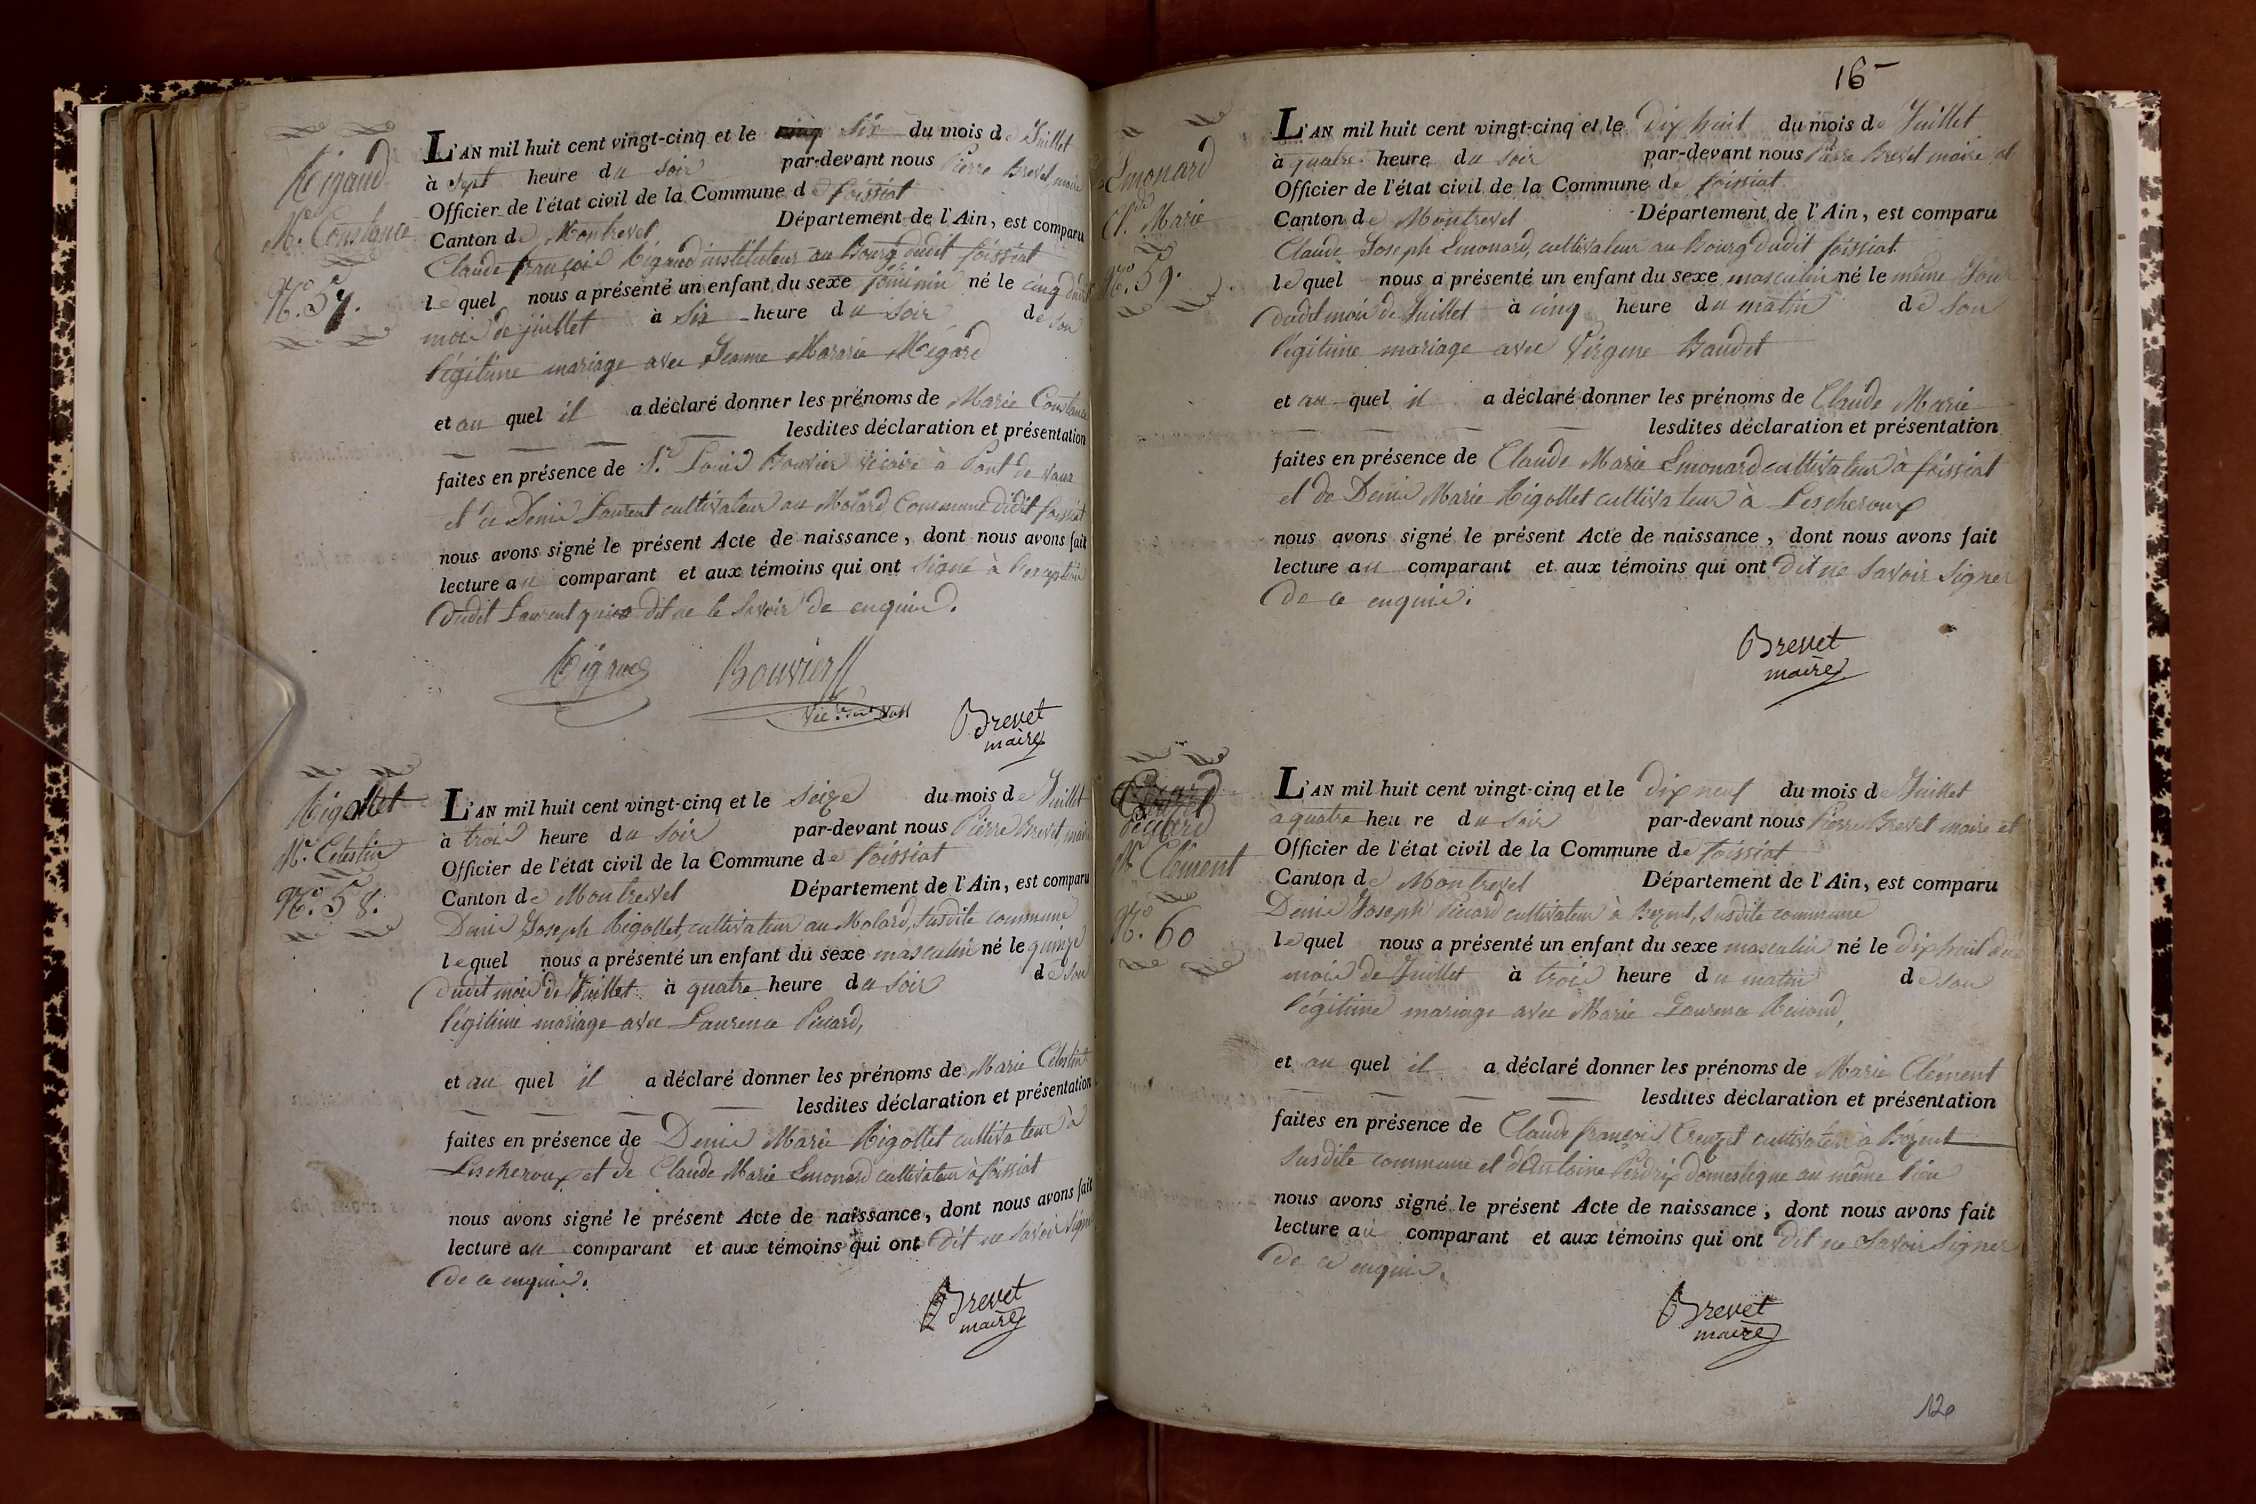 Rigaud
M.ie Constance
N.o 57.
L'AN mil huit cent vingt-cinq et le six du mois de Juillet
à sept heure du soir par-devant nous Pierre Brevet, maire
Officier de l'état civil de la Commune de foissiat
Canton de Montrevel Département de l'Ain, est comparu
Claude françois Rigaud instituteur au Bourg dudit foissiat
lequel nous a présenté un enfant du sexe féminin né le cinq dudit
mois de juillet à six heure du soir de son
légitime mariage avec Jeanne Mégard
et au quel il a déclaré donner les prénoms de Marie Constance
lesdites déclaration et présentation
faites en présence de S.r Louis Bouvier vicaire à Pont de Vaux
et de Denis Laurent cultivateur au Molard Commune dudit foissiat
nous avons signé le présent Acte de naissance, dont nous avons fait
lecture au comparant et aux témoins qui ont signé à l'exception
dudit Laurent qui a dit ne le savoir de ce enquis.
Rigaud Bouvier
Brevet
maire
Rigollet
M.ie Célestin
N.o 58.
L'AN mil huit cent vingt-cinq et le seize du mois de Juillet
à trois heure du soir par-devant nous Pierre Brevet, maire
Officier de l'état civil de la Commune de foissiat
Canton de Montrevel Département de l'Ain, est comparu
Denis Joseph Rigollet, cultivateur au Molard, susdite commune
lequel nous a présenté un enfant du sexe masculin né le quinze
dudit mois de Juillet à quatre heure du soir de son
légitime mariage avec Laurence Picard,
et au quel il a déclaré donner les prénoms de Marie Célestin
lesdites déclaration et présentation
faites en présence de Denis Marie Rigollet cultivateur à
Lescheroux et de Claude Marie Emonard cultivateur à foissiat
nous avons signé le présent Acte de naissance, dont nous avons fait
lecture au comparant et aux témoins qui ont dit ne savoir signer
de ce enquis.
Brevet
maire
16
Emonard
Cl.de Marie
N.o 59.
L'AN mil huit cent vingt-cinq et le dix huit du mois de Juillet
à quatre heure du soir par-devant nous Pierre Brevet maire et
Officier de l'état civil de la Commune de foissiat
Canton de Montrevel Département de l'Ain, est comparu
Claude Joseph Emonard, cultivateur au Bourg dudit foissiat
lequel nous a présenté un enfant du sexe masculin né le même jour
dudit mois de Juillet à cinq heure du matin de son
légitime mariage avec Virgine Baudet
et au quel il a déclaré donner les prénoms de Claude Marie
lesdites déclaration et présentation
faites en présence de Claude Marie Emonard cultivateur à foissiat
et de Denis Marie Rigollet cultivateur à Lescheroux
nous avons signé le présent Acte de naissance, dont nous avons fait
lecture au comparant et aux témoins qui ont dit ne savoir signer
de ce enquis.
Brevet
maire
Picard
M.ie Clément
N.o 60
L'AN mil huit cent vingt-cinq et le dix neuf du mois de Juillet
à quatre heure du soir par-devant nous Pierre Brevet maire et
Officier de l'état civil de la Commune de foissiat
Canton de Montrevel Département de l'Ain, est comparu
Denis Joseph Picard cultivateur à Bezent, susdite commune
lequel nous a présenté un enfant du sexe masculin né le dix huit du
mois de Juillet à trois heure du matin de son
légitime mariage avec Marie Laurence Renoud,
et au quel il a déclaré donner les prénoms de Marie Clément
lesdites déclaration et présentation
faites en présence de Claude françois Creuzet cultivateur à Bezent
susdite commune et d'Antoine Perdrix domestique au même lieu
nous avons signé le présent Acte de naissance, dont nous avons fait
lecture au comparant et aux témoins qui ont dit ne savoir signer
de ce enquis.
Brevet
maire